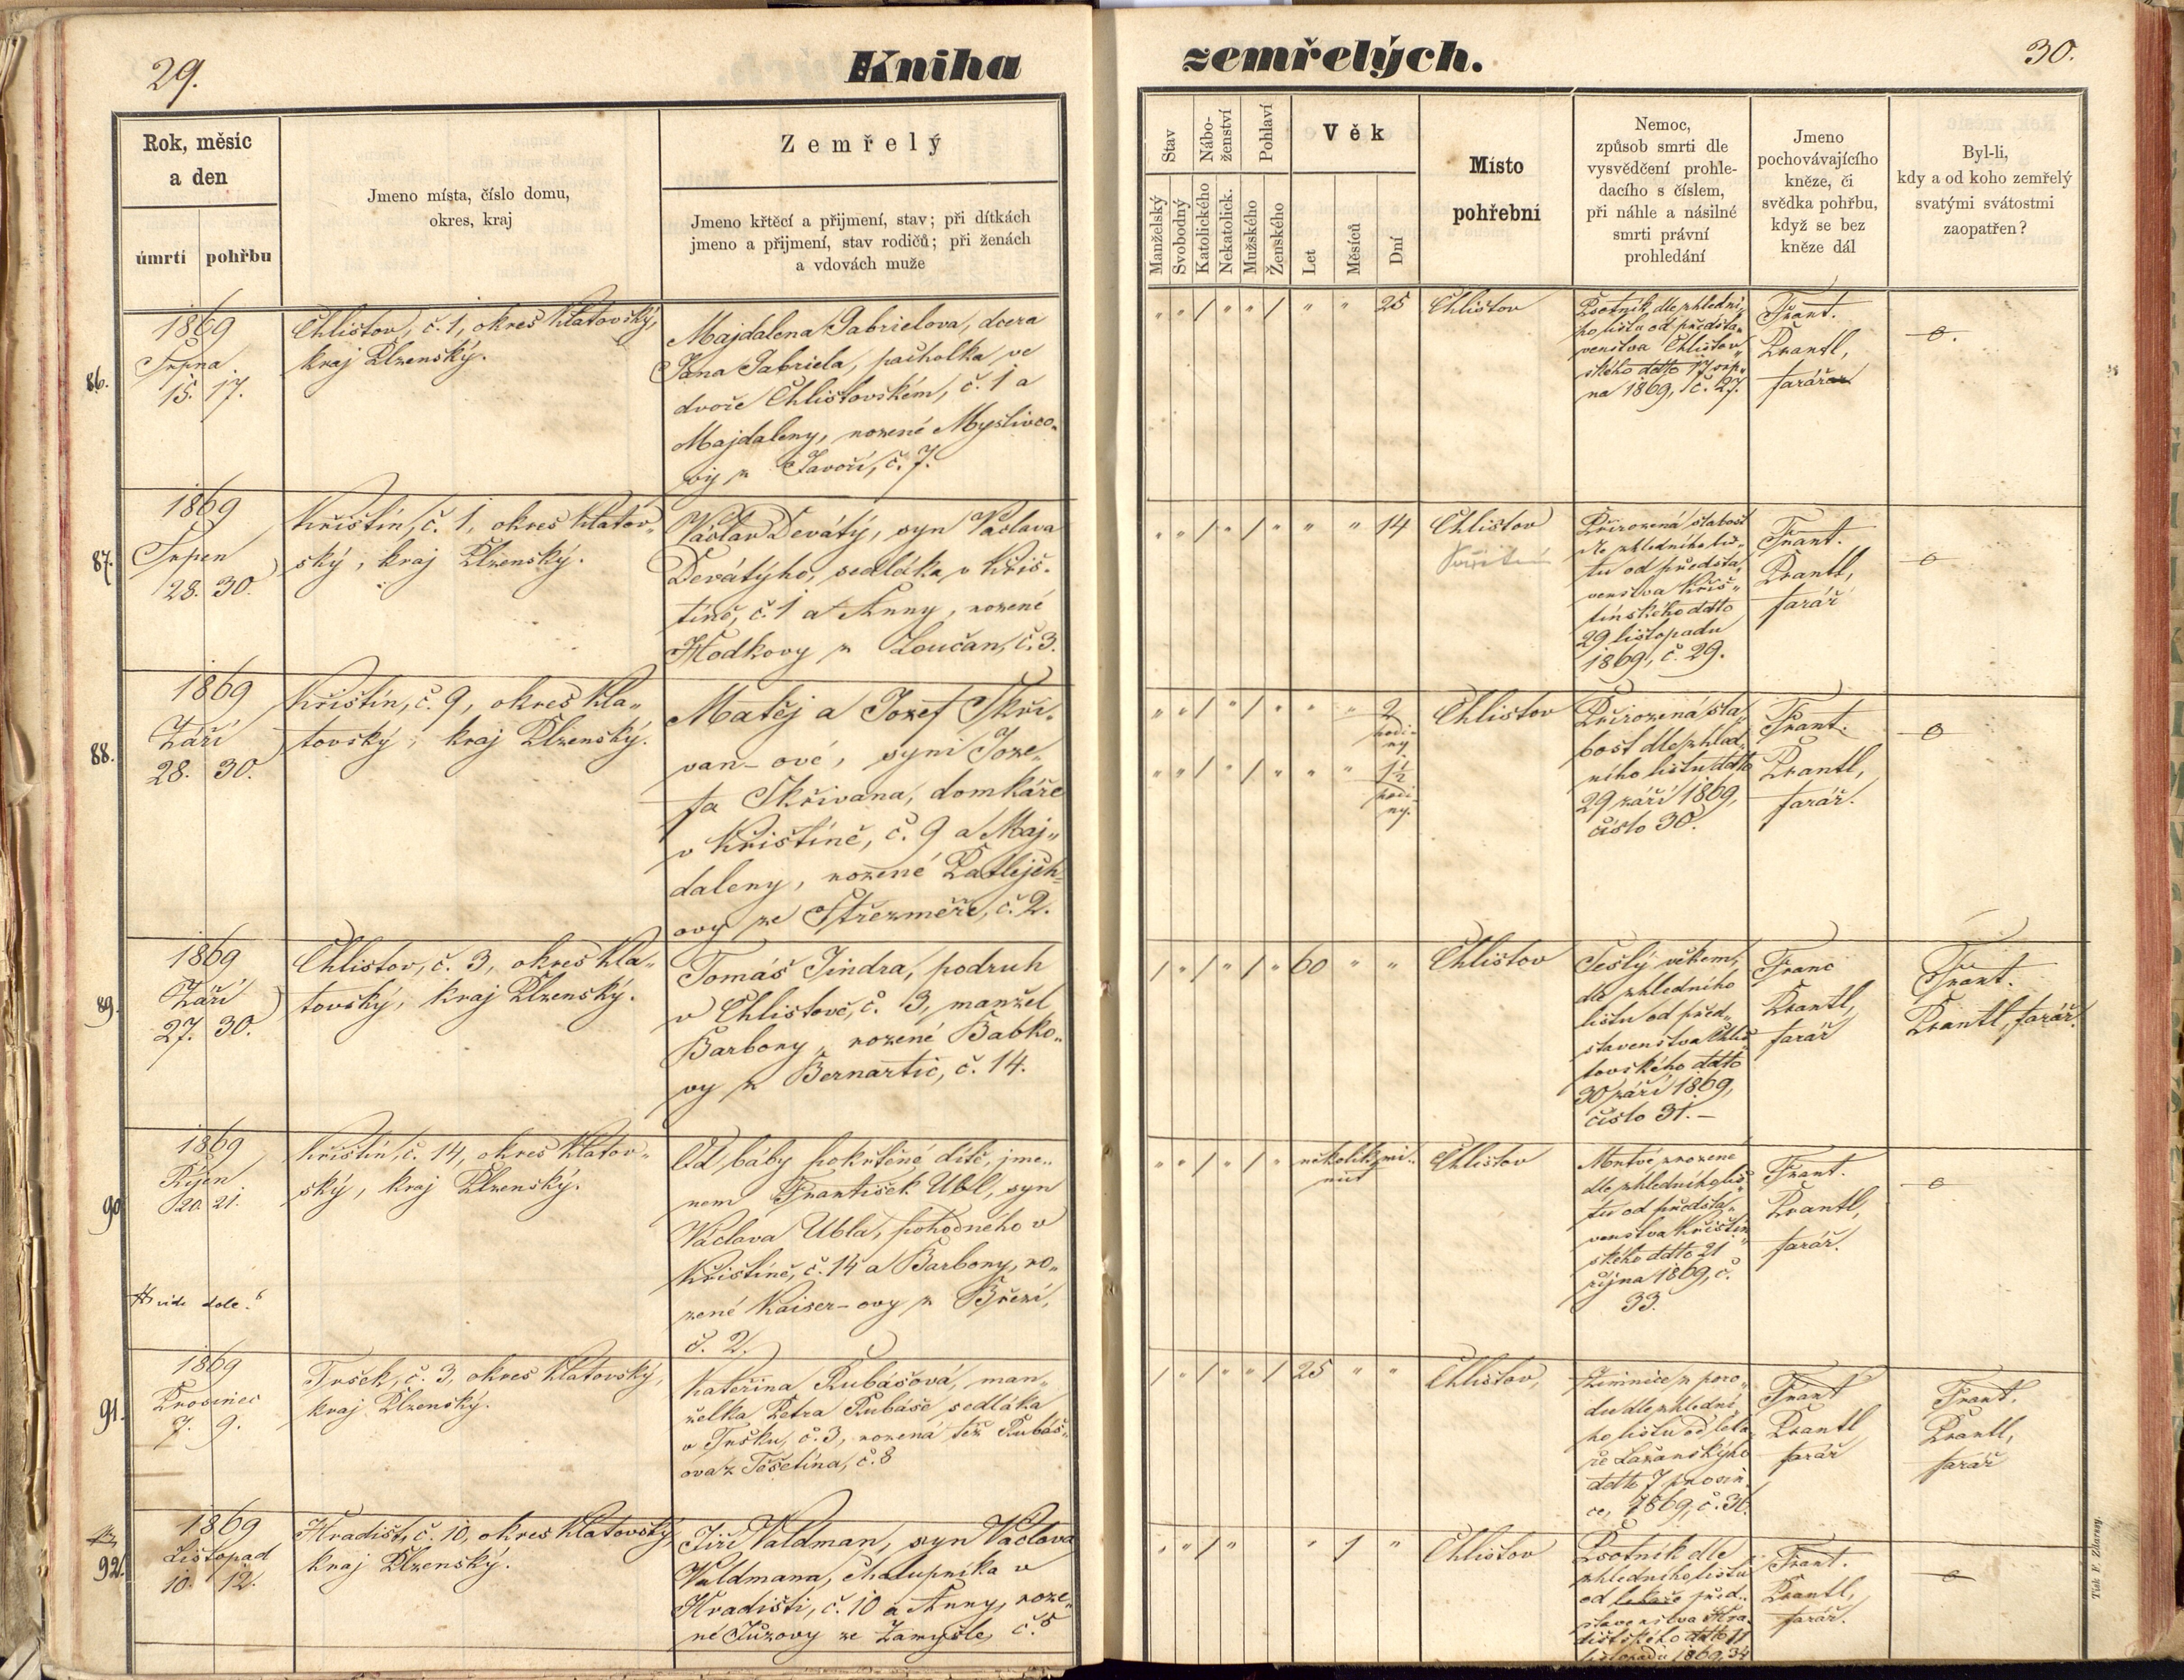 29.
Kniha
zemřelých.
30.
Rok, měsíc
a den
úmrtí
pohřbu
Jmeno místa, číslo domu,
okres, kraj
Zemřelý
Jmeno křtěcí a přijmení, stav; při dítkách
jmeno a přijmení, stav rodičů; při ženách
a vdovách muže
Stav
Manželský
Svobodný
Nábo-
ženství
Katolického
Nekatolick.
Pohlaví
Mužského
Ženského
Věk
Let
Měsíců
Dní
Místo
pohřební
Nemoc,
způsob smrti dle
vysvědčení prohle-
dacího s číslem,
při náhle a násilné
smrti právní
prohledání
Jmeno
pochovávajícího
kněze, či
svědka pohřbu,
když se bez
kněze dál
Byl-li,
kdy a od koho zemřelý
svatými svátostmi
zaopatřen?
86.
1869
Srpna
15. 17.
Chlistov, č. 1, okres Klatovský,
kraj Plzenský.
Majdalena Gabrielova, dcera
Jana Gabriela, pacholka ve
dvoře Chlistovském, č. 1 a
Majdaleny, rozené Myslivco„
vy z Javoří, č. 7.
" " / " " / " " 25
Chlistov
Psotník, dle ohlední„
ho listu od předsta„
venstva Chlistov„
ského ddto 17 srp„
na 1869, č. 27.
Frant.
Prantl,
farář
o.
87.
1869
Srpen
28. 30.
Křištín, č. 1, okres Klatov„
ský, kraj Plzenský.
Václav Devátý, syn Václava
Devátýho, sedláka v Křiš„
tíně, č. 1 a Anny, rozené
Hodkovy z Loučan, č. 3.
" " / " / " " " 14
Chlistov
Přirozená slabost
dle ohledního lis„
tu od předsta„
venstva Křiš„
tínského ddto
29 listopadu
1869, č. 29.
Frant.
Prantl,
farář
o
88.
1869
Září
28. 30.
Křištín, č. 9, okres Kla„
tovský, kraj Plzenský.
Matěj a Jozef Skři„
van-ové, syni Joze„
fa Skřivana, domkáře
v Křištíně, č. 9 a Maj„
daleny, rozené Patlejch„
ovy ze Střezměře, č. 2.
" " / " / " " " 2
hodi„
ny
" " / " / " " " 1½
hodi„
ny.
Chlistov
Přirozená sla„
bost dle ohled„
ního listu ddto
29 září 1869,
číslo 30.
Frant.
Prantl,
farář.
o
89.
1869
Září
27. 30.
Chlistov, č. 3, okres Kla„
tovský, kraj Plzenský.
Tomáš Jindra, podruh
v Chlistově, č. 3, manžel
Barbory, rozené Babko„
vy z Bernartic, č. 14.
/ " / " / " 60 " "
Chlistov
Sešlý věkem,
dle ohledního
listu od před„
stavenstva Chlis„
tovského ddto
30 září 1869,
číslo 31.—
Franc
Prantl,
farář
Frant.
Prantl, farář.
90
1869
Říjen
20. 21.
Křištín, č. 14, okres Klatov„
ský, kraj Plzenský.
Od báby pokřtěné dítě, jme„
nem František Ubl, syn
Václava Ubla, pohodného v
Křištíně, č. 14 a Barbory, ro„
zené Kaiser-ovy z Březí,
č. 2.
" " / " / " několik mi„
nut
Chlistov
Mrtvě zrozené
dle ohledního lis„
tu od předsta„
venstva Křištín„
ského ddto 21
října 1869, č.
33.
Frant.
Prantl,
farář.
o
vide dole.
91.
1869
Prosinec
7. 9.
Trsek, č. 3, okres Klatovský,
kraj Plzenský.
Kateřina Rubášová, man„
želka Petra Rubáše sedláka
v Trsku, č. 3, rozená též Rubáš„
ova z Těšetína, č. 8
/ " / " " / 25 " "
Chlistov,
Zimnice z poro„
du dle ohlední„
ho listu od léka„
ře Lažanskýho
ddto 7 prosin„
ce, 1869, č. 36.
Frant
Prantl
farář
Frant.
Prantl,
farář
92.
1869
Listopad
10. 12.
Hradišt, č. 10, okres Klatovský,
kraj Plzenský.
Jiří Valdman, syn Václava
Valdmana, chalupníka v
Hradišti, č. 10 a Anny, roze„
né Jůzovy ze Zamyšle, č. 5
" " / " " 1 "
Chlistov
Psotník dle
ohledního listu
od lekaře před„
stavenstva Hra„
dištského ddto 11
listopadu 1869, 34
Frant.
Prantl,
farář.
o
Tisk F. Zdarssy.